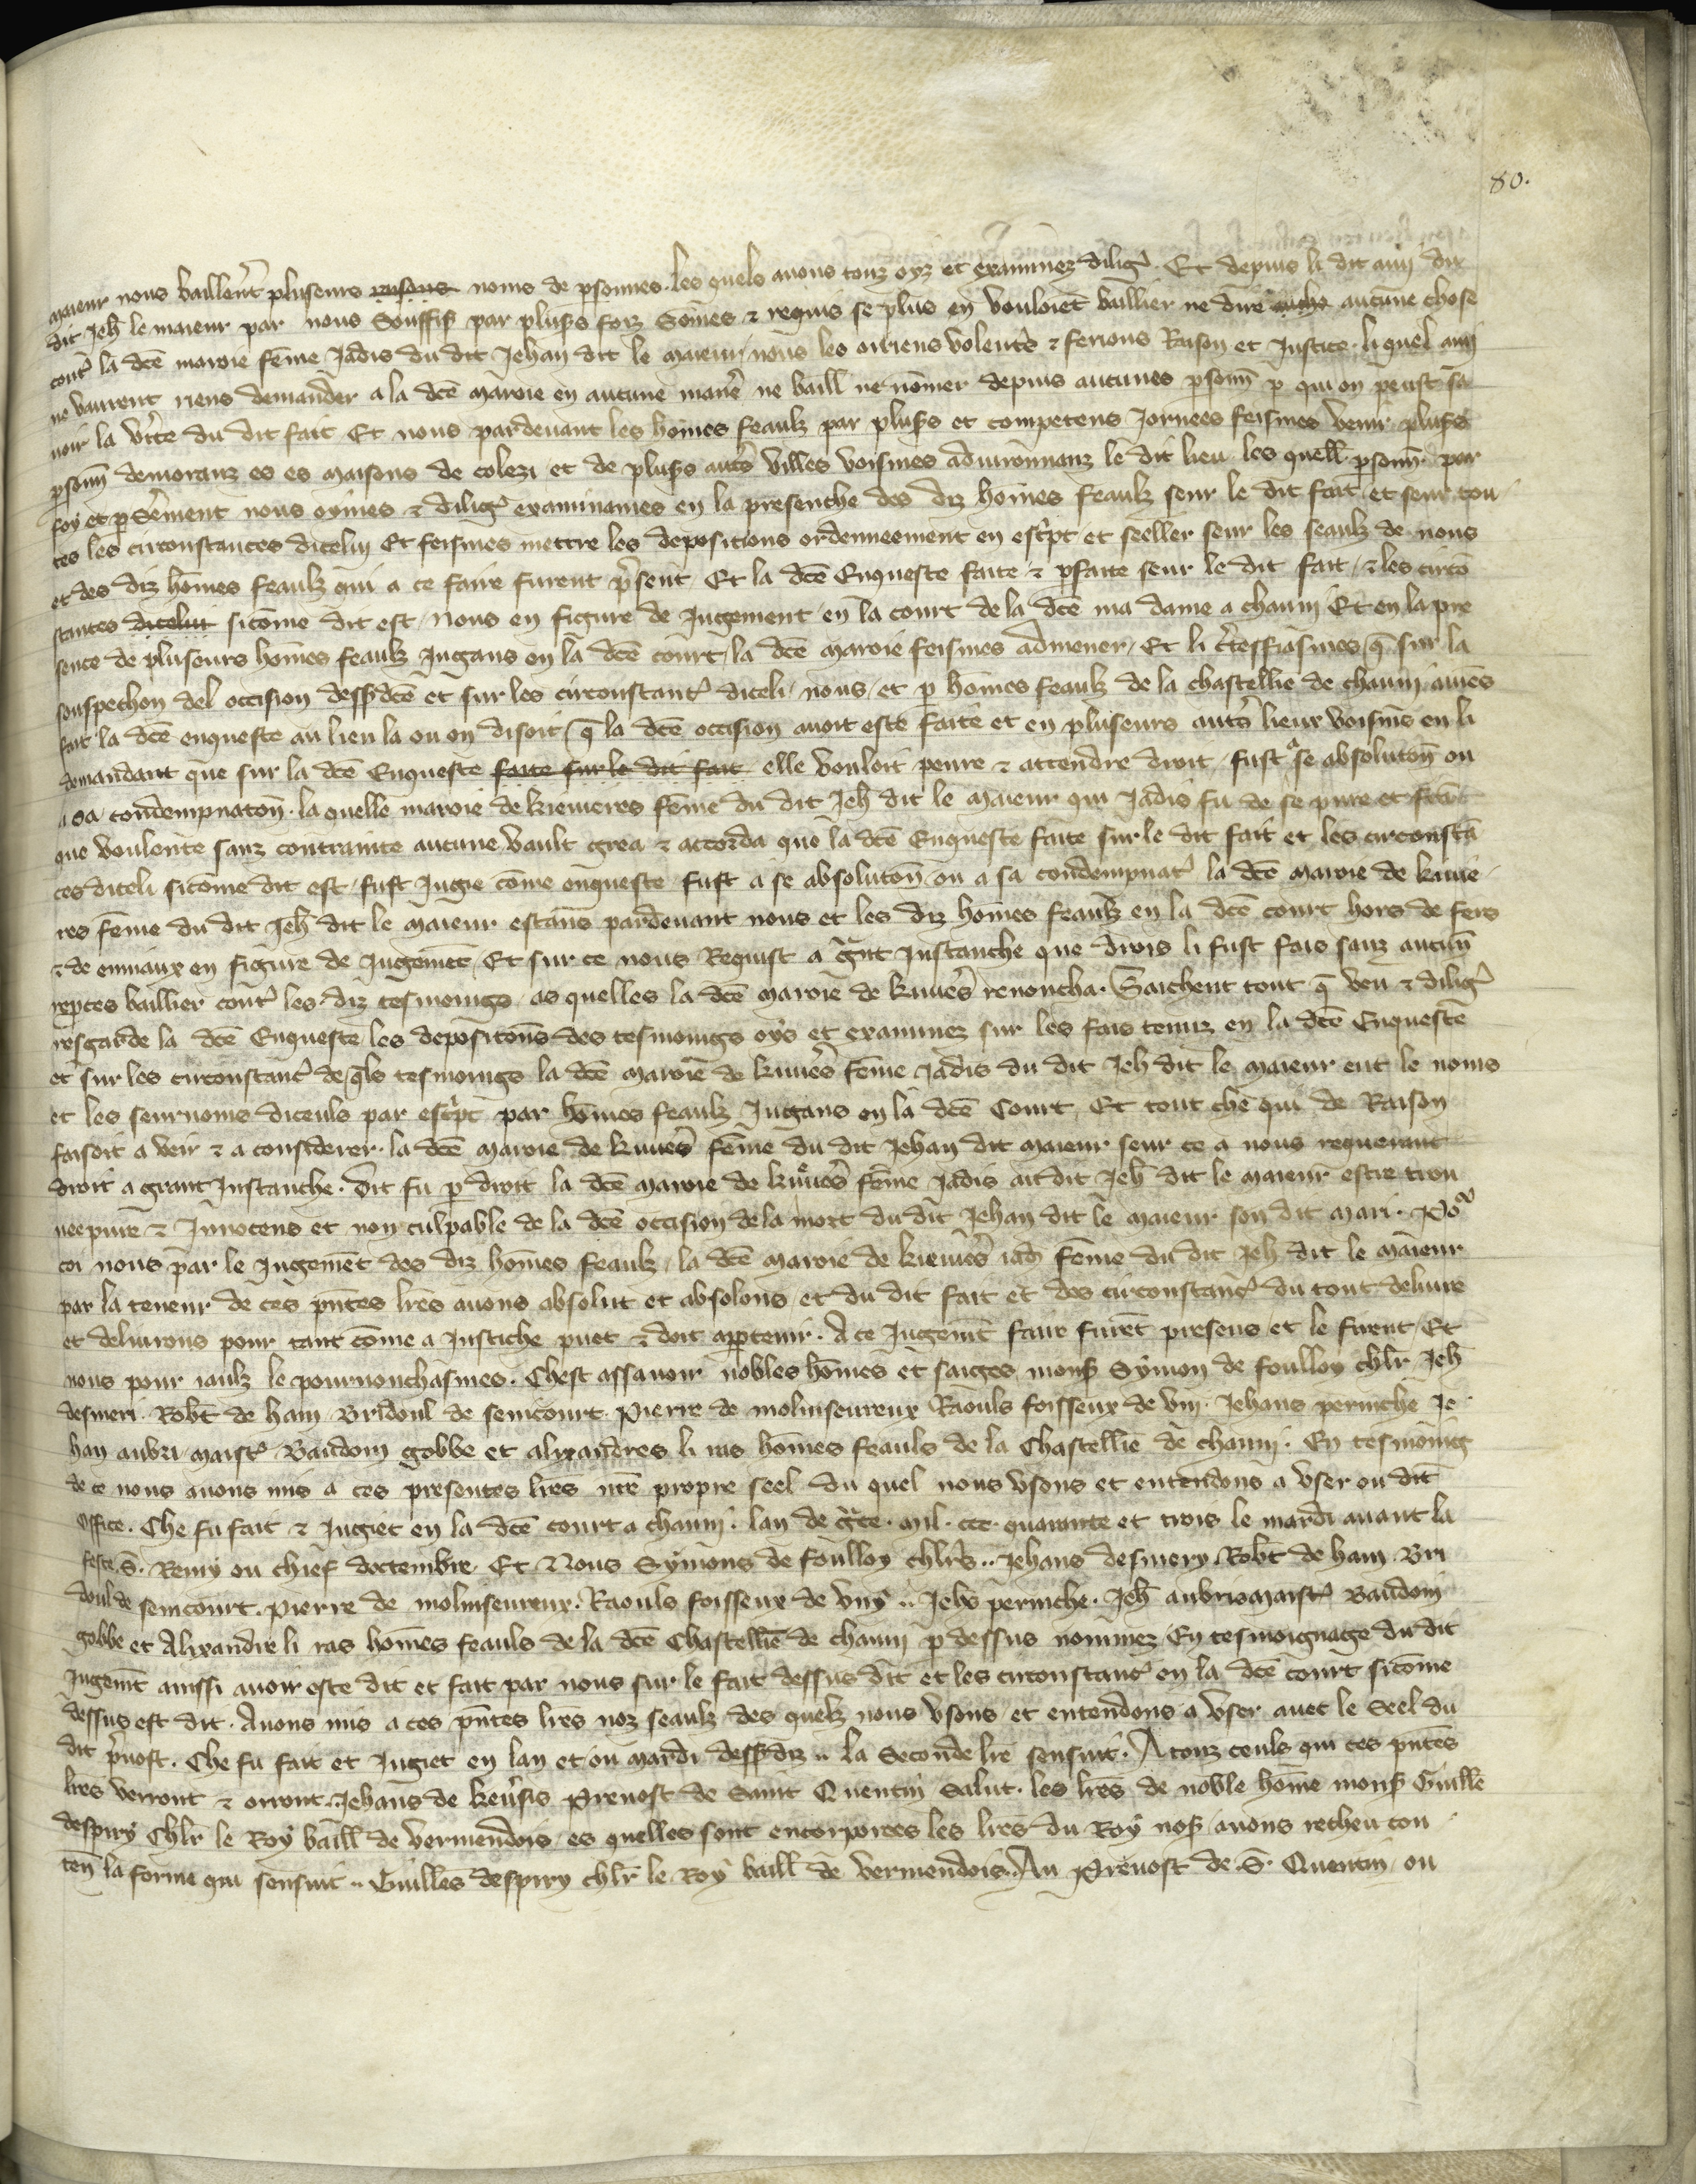 80.
maieur nous baillerẽt pluseurs raisons noms de psonnes. les quels auons touz oyz et examinez dilig̃. Et depuis li dit ami du
dit Jeh̃ le maieur par nous Souffis̃ par plus̃s foiz Som̃es & requis se plus en vouloiẽt baillier ne dire aucune chose
cont̃ la dc̃e maroie fẽme Jadis du dit Jehan dit le maieur / nous les oiriens volent̃s & ferions Raison et Justice. li quel ami
ne vaurent riens demander a la dc̃e maroie en aucune manẽ ne baill̃ ne nõmer depuis aucunes p̱sonn̄ p̱ qui on peust sa
uoir la v̄ite du dit fait Et nous pardeuant les hõmes feaulz par plus̃s et competens Jornees feismes venir plus̃s
p̱sonn̄ demoranz es es maisons de colezi et de plus̃s aut̃s villes voisines aduironnanz le dit lieu les quell̃ p̱sonn̄ par
foy et p̱ serẽment nous oymes & dilig̃ examinames en la presenche des diz hõmes feaulz seur le dit fait et seur tou
tes les circonstances dicelui Et feismes mettre les depositions ordenneement en esc̃pt et seeller seur les seaulz de nous
et des diz hõmes feaulz qui a ce faire furent p̃sent Et la dc̃e Enqueste faite & p̱faite seur le dit fait / & les circõ
stances dicelui sicõme dit est / nous en figure de Jugement / en la court de la dc̃e ma dame a chauni Et en la pre
sence de pluseurs hõmes feaulz Jugans en la dc̃e court / la dc̃e maroie feismes admener / Et li c̃teffiasmes / q̃ sur la
souspechon del occision dess̃dc̃e et sur les circonstanc̃ diceli / nous / et p̱ hõmes feaulz de la chastellie de chauni auiẽs
fait la dc̃e enqueste au lieu la ou on disoit / q̃ la dc̃e occision auoit este faite et en pluseurs aut̃s lieux voisins en li
demandant que sur la dc̃e Enqueste faite sur le dit fait elle vouloit penre & attendre droit / fust a se absolutoñ ou
a sa condempnatoñ. la quelle maroie de kieuieres fẽme du dit Jeh̃ dit le maieur qui Jadis fu de se pure et
que voulente sanz contrainte aucune vault grea & accorda que la dc̃e Enqueste faite sur le dit fait et les circonstã
ces diceli sicõme dit est / fust Jugie cõme enqueste / fust a se absolutoñ ou a sa condempnat̃ la dc̃e maroie de kiuie
res fẽme du dit Jeh̃ dit le maieur estans pardeuant nous et les diz hõmes feaulz en la dc̃e court hors de fers
& de enniaux en figure de Jugemẽt / Et sur ce nous Requist a g̃nt Instanche que drois li fust fais sanz aucun̄
rep̱ces baillier cont̃ les diz tesmoings / as quelles la dc̃e maroie de kiuiẽs renoncha. Saichent tout q̃ veu & dilig̃
resgarde la dc̃e Enqueste / les depositoñs des tesmoings oys et examinez sur les fais tenuz en la dc̃e Enqueste
et sur les circonstanc̃ de q̃ls tesmoings la dc̃e maroie de kiuiẽs fẽme Jadis du dit Jeh̃ dit le maieur eut le noms
et les seurnoms diceuls par esc̃pt par hõmes feaulz Jugans en la dc̃e Court / Et tout che qui de Raison
faisoit a veir & a considerer. la dc̃e maroie de kiuiẽs fẽme du dit Jehan dit maieur seur ce a nous requerant
droit a grant Instanche. Dit fu p̱ droit la dc̃e maroie de kiuiẽs fẽme Jadis au dit Jeh̃ dit le maieur estre trou
uee pure & Innocens et non culpable de la dc̃e occision de la mort du dit Jehan dit le maieur son dit mari. Po
coi nous par le Jugemẽt des diz hõmes feaulz / la dc̃e maroie de kieuiẽs iad̃ fẽme du dit Jeh̃ dit le maieur
par la teneur de ces pñtes lr̃es auons absolut et absolons / et du dit fait et des circonstanc̃ du tout deliure
et deliurons pour tant cõme a Justiche puet & doit app̱tenir. A ce Jugem̃t faire furẽt presens et le firent / Et
nous pour iaulz le pournonchasmes. Chest assauoir nobles hõmes et saiges mons̃ Symon de foulloy chlr̃ Jeh̃
desmeri. Robt̃ de ham Bridoul de semcourt. Pierre de molinseureux Raouls foisseux de vni. Jehans perniche Je
han aubri maist̃ Baudoin gobbe et alixandres li ras hõmes feauls de la Chastellie de chauni. En tesmoing
de ce nous auons mis a ces presentes lr̃es nr̃e propre seel du quel nous vsons et entendons a vser ou dit
Office. Che fu fait & Jugiet en la dc̃e court a chauni. lan de g̃ce. mil. ccc. quarante et trois le mardi auant la
feste S̃. Remy ou chief doctembre. Et Nous Symons de foulloy chlr̃s .. Jehans desmery Robt̃ de ham. Bri
doul de semcourt. pierre de molinseureux. Raouls foisseux de vny .. Jeh̃s perniche. Jeh̃ aubris maist̃ Baudoin
gobbe et Alixandre li ras hõmes feauls de la dc̃e Chastellie de chauni p̱ dessus nommez / En tesmoignage du dit
Jugem̃t aussi auoir este dit et fait par nous sur le fait dessus dit et les circonstanc̃ en la dc̃e court sicõme
dessus est dit. Auons mis a ces pñtes lr̃es noz seaulz des quelz nous vsons et entendons a vser auec le Seel du
dit p̃uost. Che fu fait et Jugiet en lan et ou mardi dess̃diz .. la Seconde lr̃e sensuit. A touz ceuls qui ces pñtes
lr̃es verront & orront. Jehans de keur̃sis Preuost de Saint Quentin Salut. les lr̃es de noble hõme mons̃ Guill̃e
despiry Chlr̃ le Roy baill̃ de vermendois es quelles sont encorporees les lr̃es du Roy nos̃ / auons recheu con
ten̄ la forme qui sensuit .. Guill̃es despiry chlr̃ le Roy baill̃ de vermendois. Au Preuost de S̃. Quentin / ou